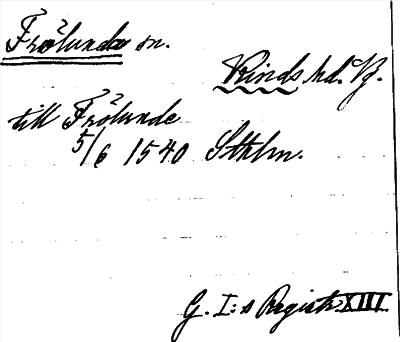 Frölunda sn.
Kinds hd. Vg.
till Frölunde
5/6 1540 Sthlm.
G. I:s Registr. XIII